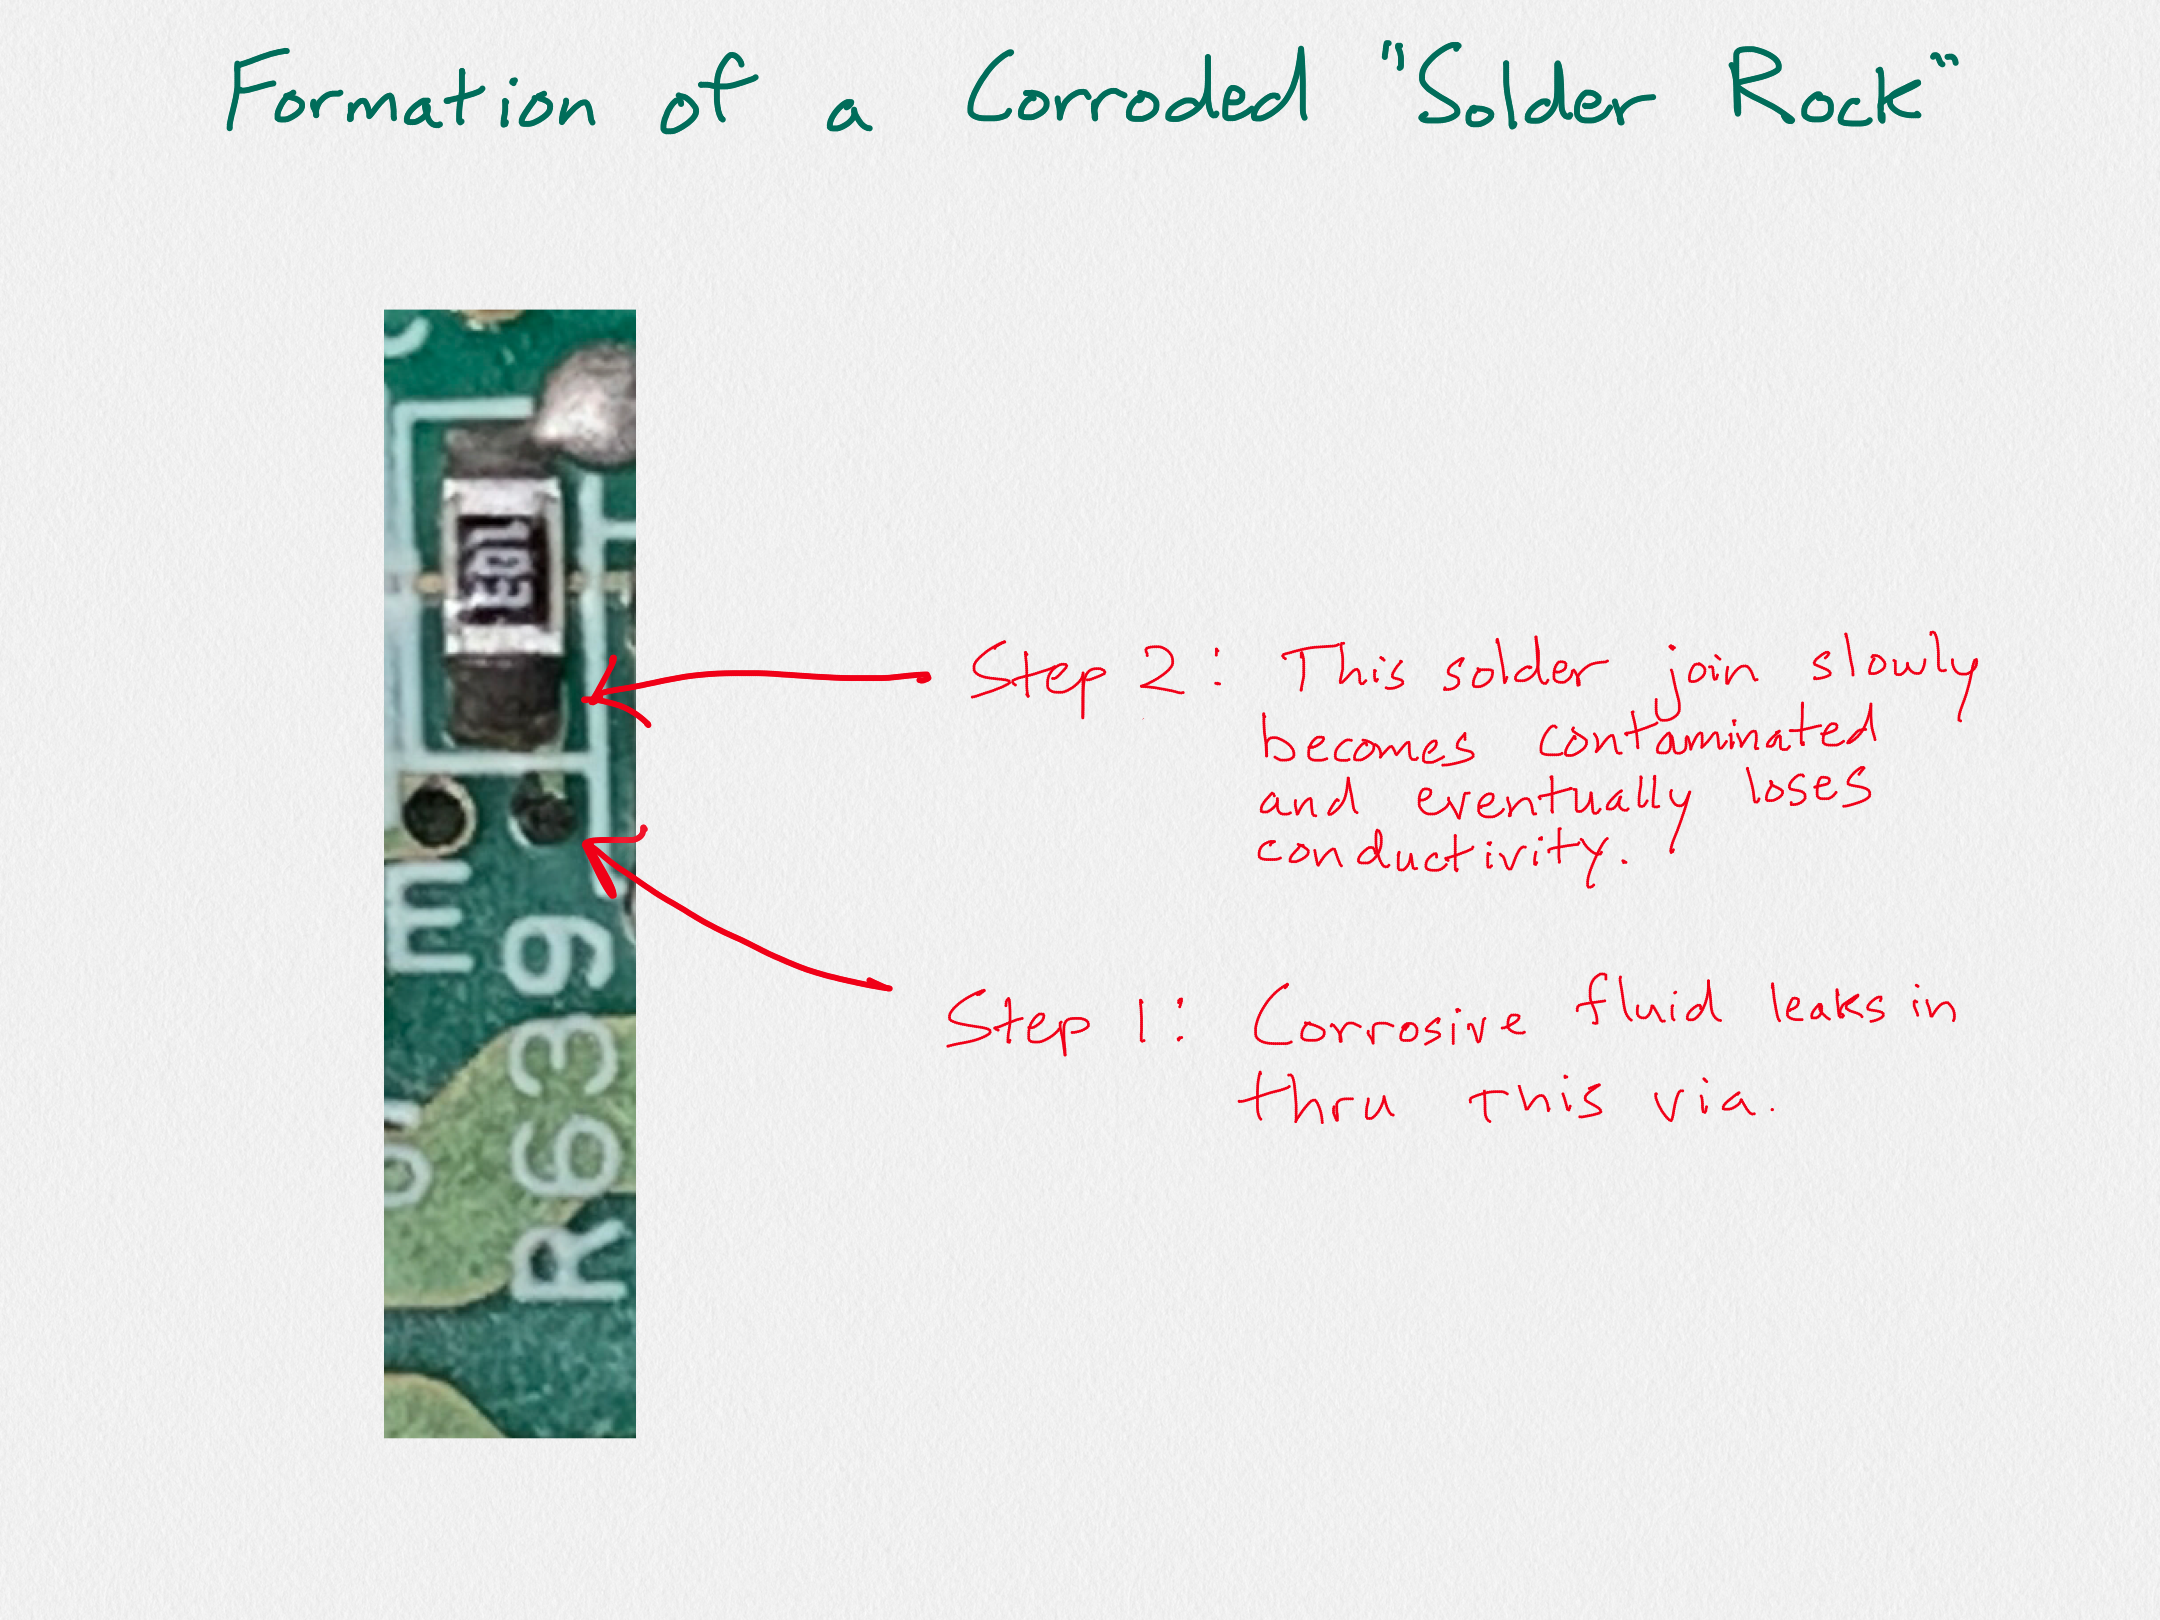 Formation of a Corroded "Solder Rock"
103
Step 2: This solder join slowly
becomes contaminated
and eventually loses
conductivity.
m
R639
Step 1: Corrosive fluid leaks in
thru this via.